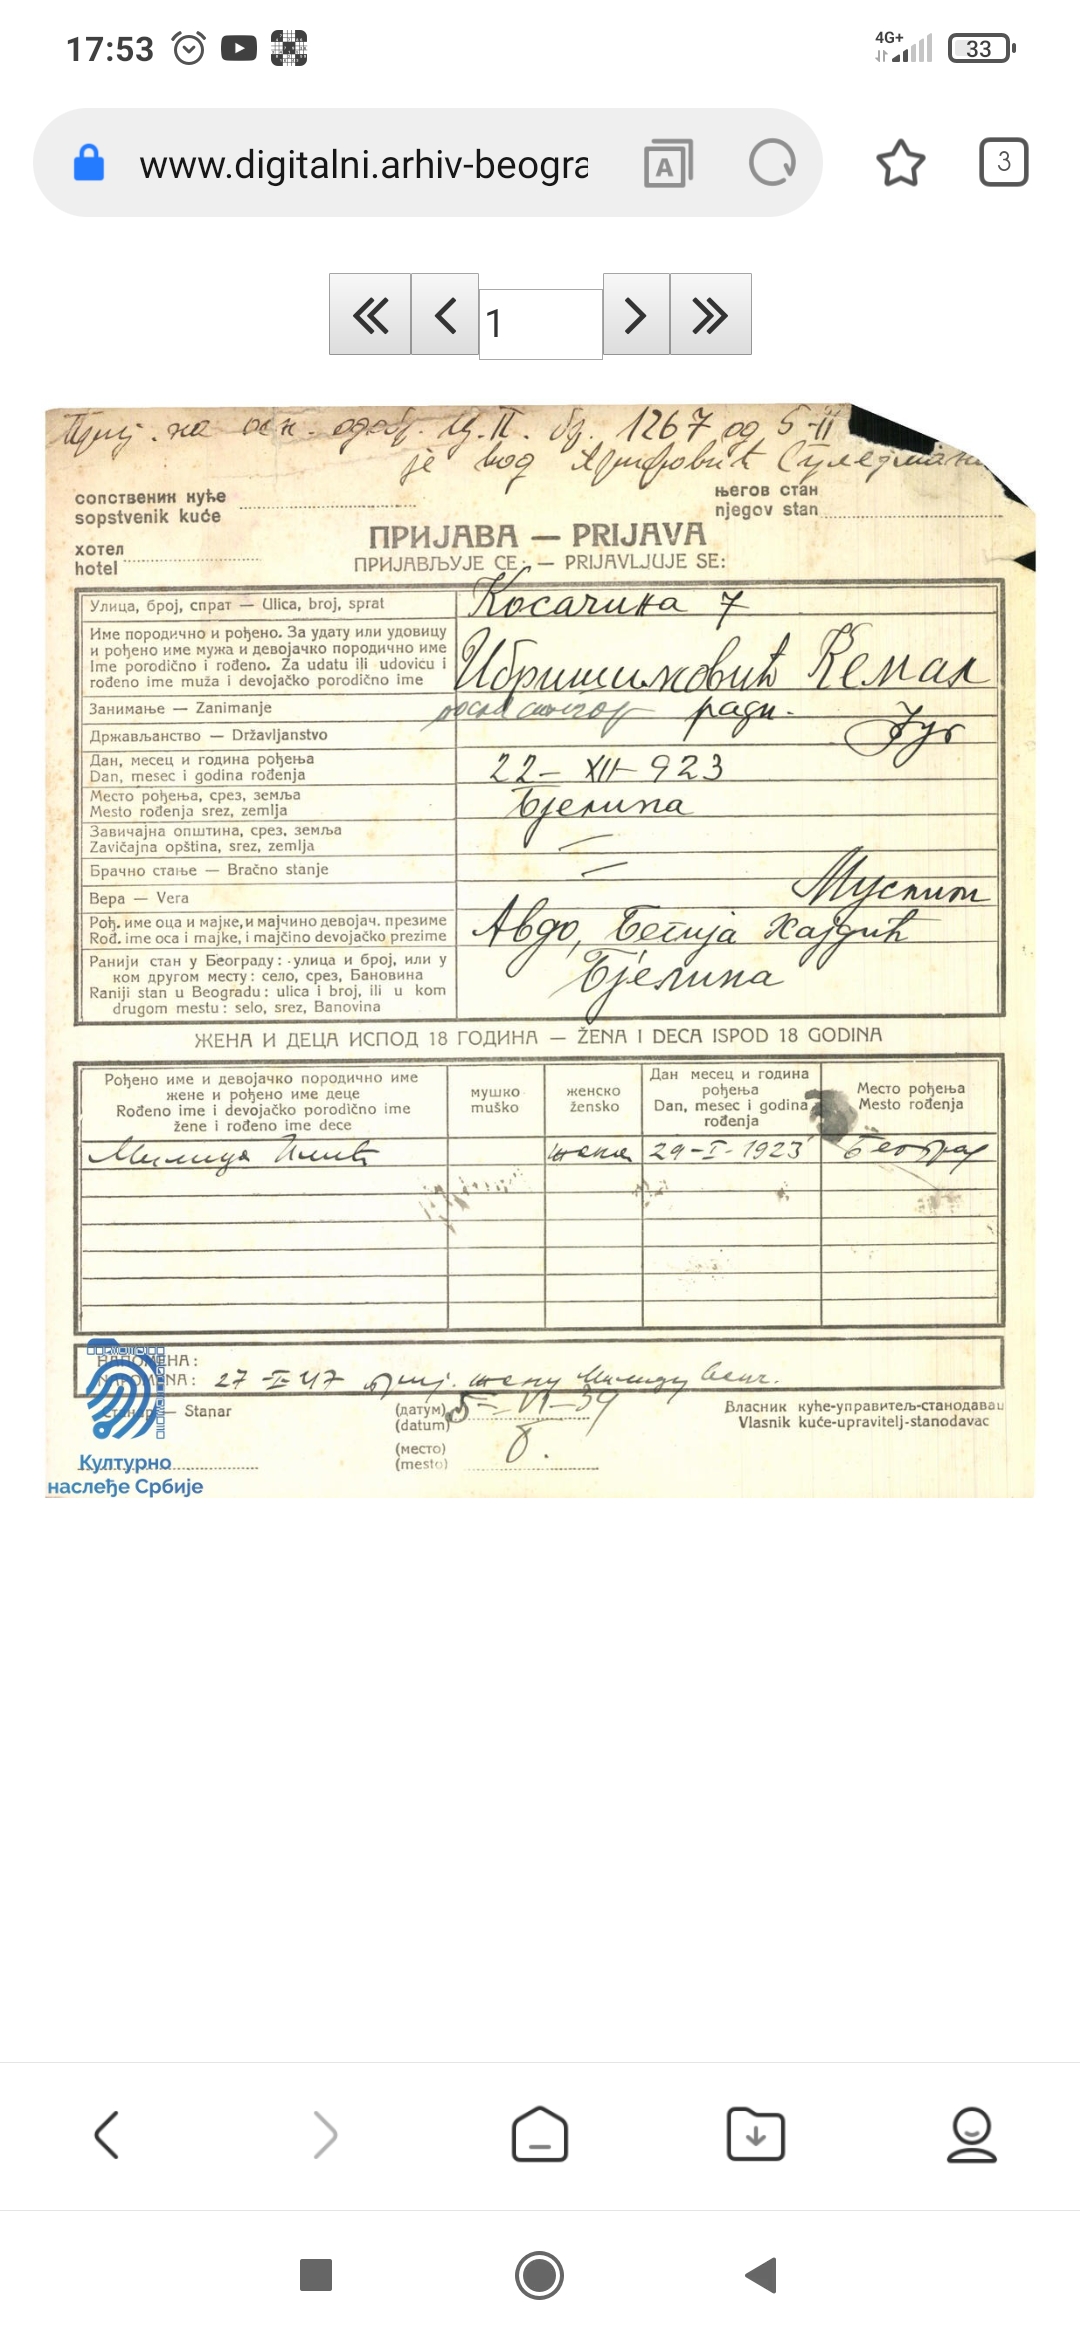 17:53
4G+
33
www.digitalni.arhiv-beogra
A
3
1
Приј. на осн. одобр. 1267 од 5-II
је код
сопственик куће
sopstvenik kuće
његов стан
njegov stan
хотел
hotel
ПРИЈАВА — PRIJAVA
ПРИЈАВЉУЈЕ СЕ: — PRIJAVLJUJE SE:
Улица, број, спрат — Ulica, broj, sprat
Косачина 7
Име породично и рођено. За удату или удовицу
и рођено име мужа и девојачко породично име
Ime porodično i rođeno. Za udatu ili udovicu i
rođeno ime muža i devojačko porodično ime
Ибришимовић Кемал
Занимање — Zanimanje
радн.
Држављанство — Državljanstvo
Југ
Дан, месец и година рођења
Dan, mesec i godina rođenja
22-XII-923
Место рођења, срез, земља
Mesto rođenja srez, zemlja
Бјелина
Завичајна општина, срез, земља
Zavičajna opština, srez, zemlja
Брачно стање — Bračno stanje
Вера — Vera
Муслим
Рођ. име оца и мајке, и мајчино девојач. презиме
Rođ. ime oca i majke, i majčino devojačko prezime
Авдо, Хајдић
Ранији стан у Београду: улица и број, или у
ком другом месту: село, срез, Бановина
Raniji stan u Beogradu: ulica i broj, ili u kom
drugom mestu: selo, srez, Banovina
Бјелина
ЖЕНА И ДЕЦА ИСПОД 18 ГОДИНА — ŽENA I DECA ISPOD 18 GODINA
Рођено име и девојачко породично име
жене и рођено име деце
Rođeno ime i devojačko porodično ime
žene i rođeno ime dece
мушко
muško
женско
žensko
Дан месец и година
рођења
Dan, mesec i godina
rođenja
Место рођења
Mesto rođenja
Милица Илић
жена
29-I-1923
Београд
НАПОМЕНА:
NAPOMENA:
27-I-47 приј. жену Милицу венч.
Станар — Stanar
(датум)
(datum)
5-VI-39
(место)
(mesto)
Б.
Власник куће-управитељ-станодавац
Vlasnik kuće-upravitelj-stanodavac
Културно
наслеђе Србије